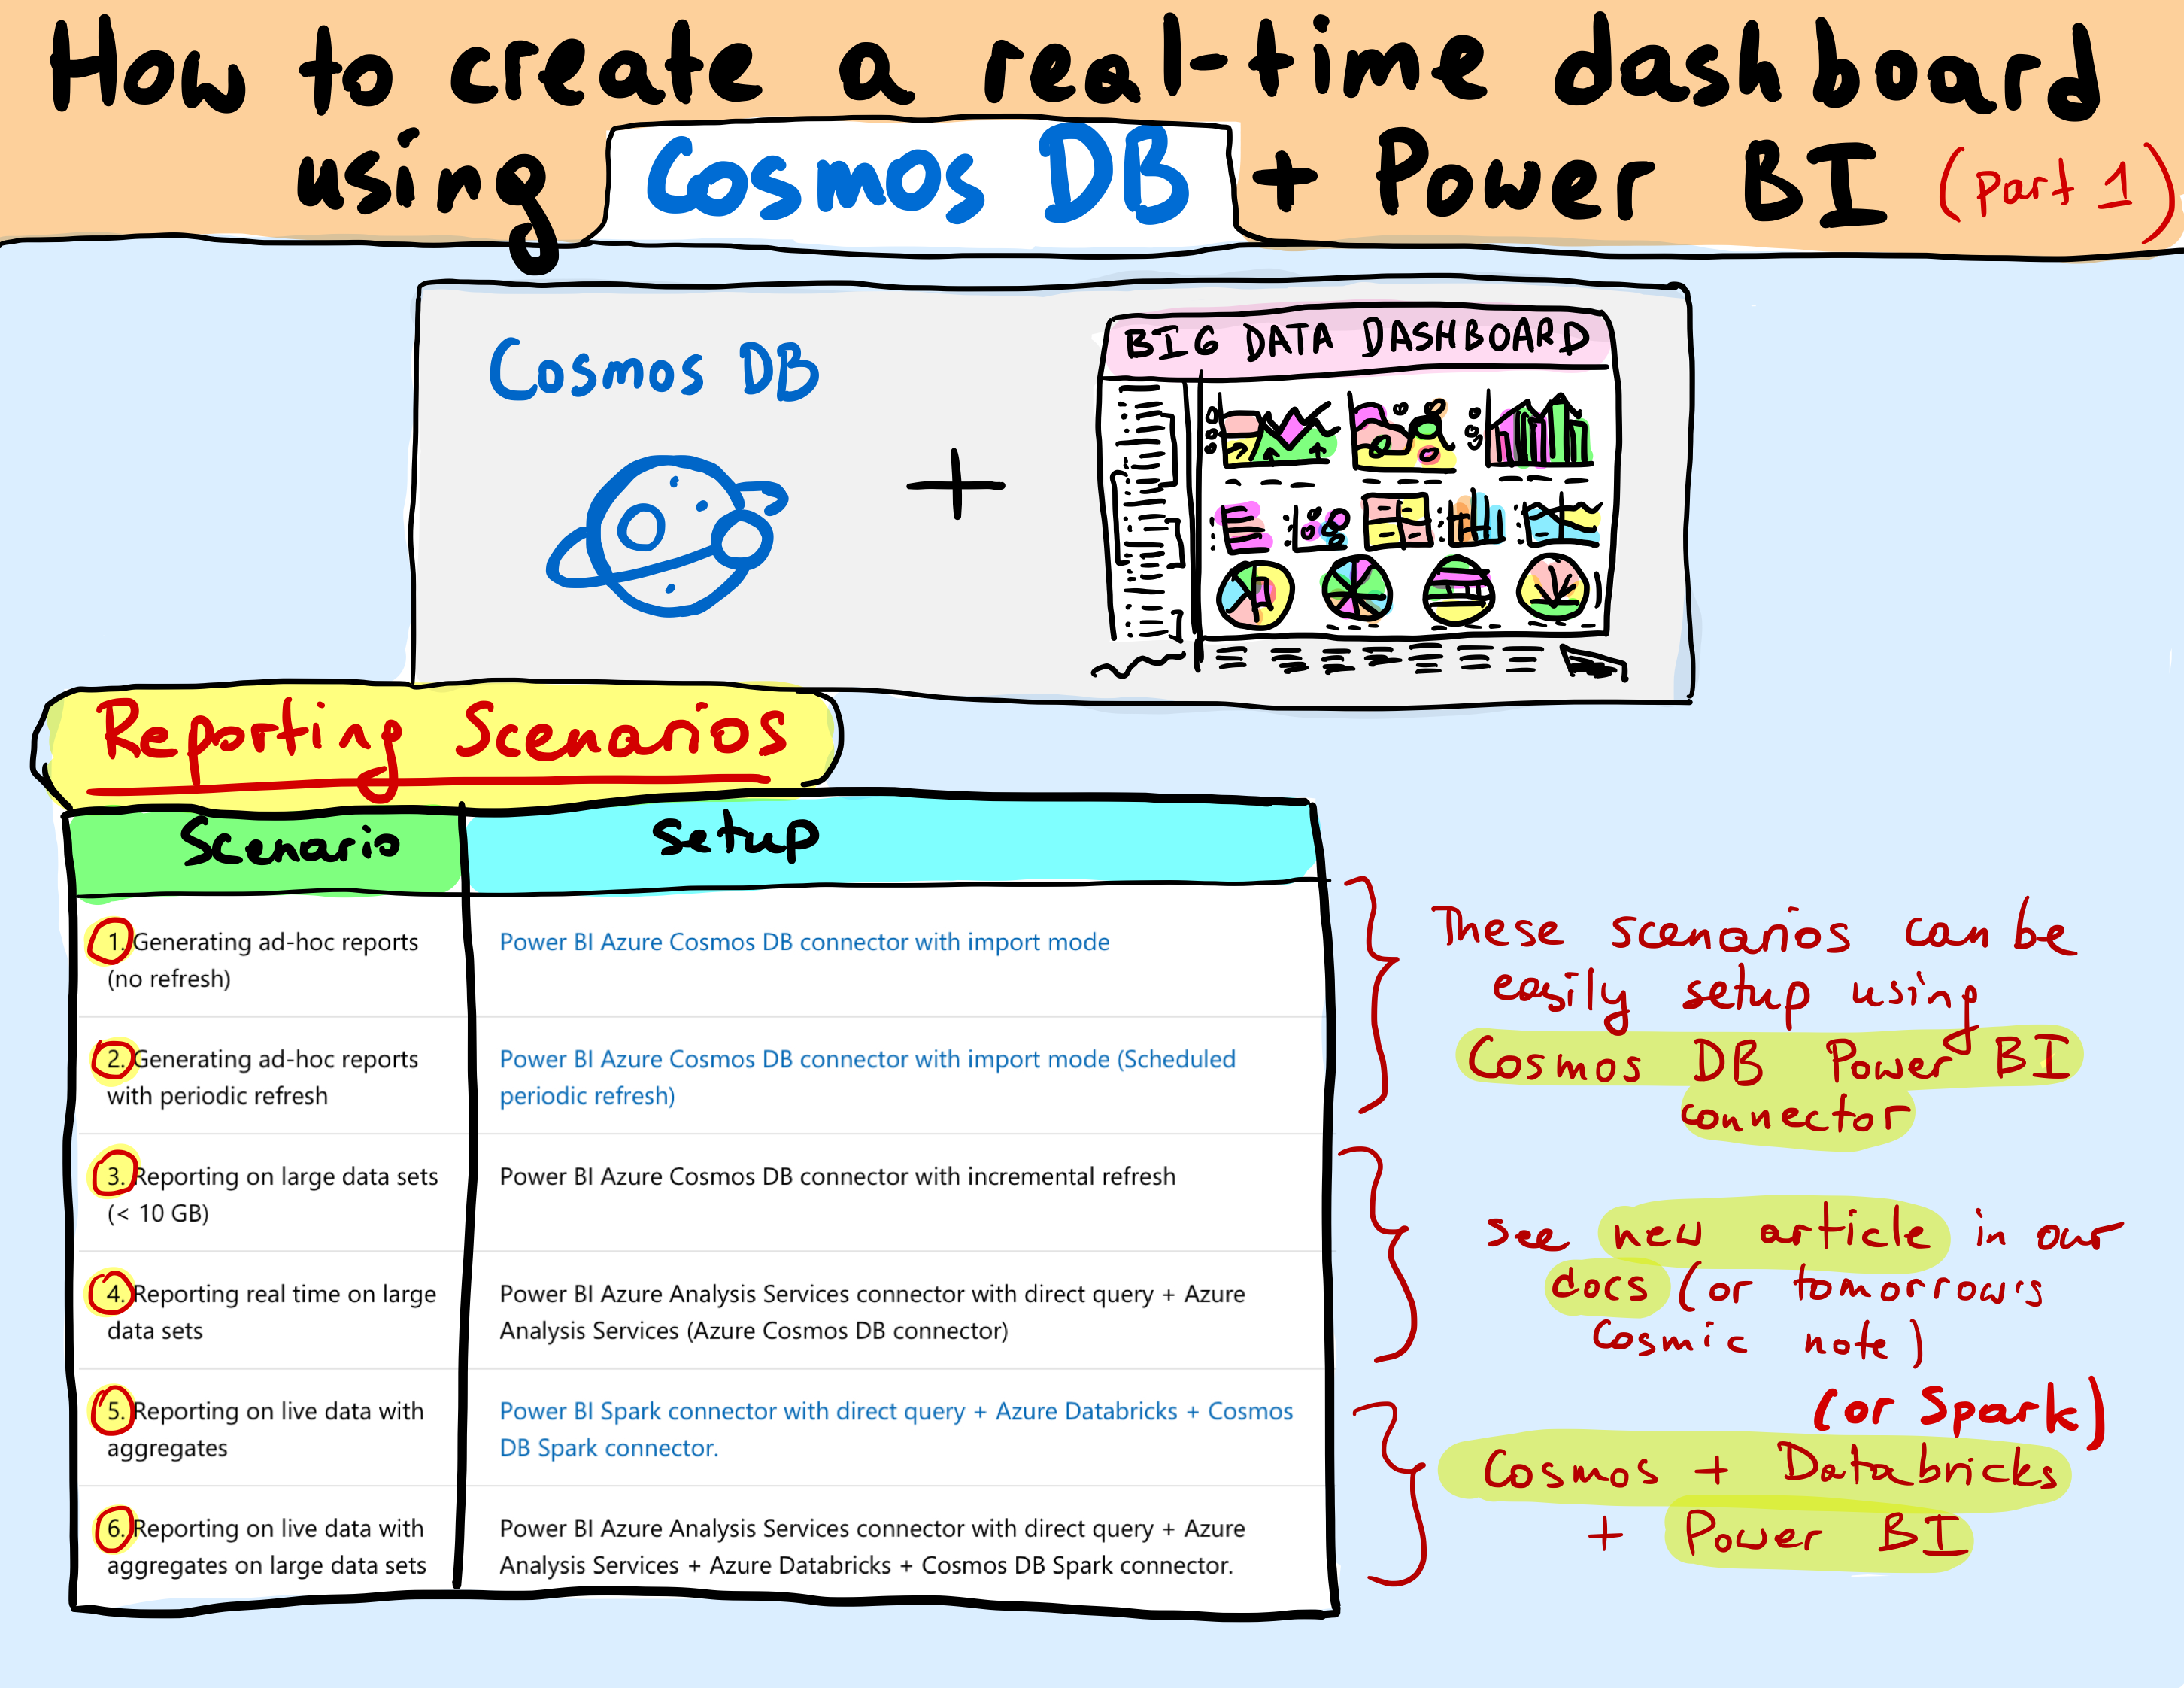 How to create a real-time dashboard
using Cosmos DB + Power BI (part 1)
Cosmos DB
+
BIG DATA DASHBOARD
Reporting Scenarios
Scenario
setup
1. Generating ad-hoc reports
(no refresh)
Power BI Azure Cosmos DB connector with import mode
2. Generating ad-hoc reports
with periodic refresh
Power BI Azure Cosmos DB connector with import mode (Scheduled
periodic refresh)
3. Reporting on large data sets
(< 10 GB)
Power BI Azure Cosmos DB connector with incremental refresh
4. Reporting real time on large
data sets
Power BI Azure Analysis Services connector with direct query + Azure
Analysis Services (Azure Cosmos DB connector)
5. Reporting on live data with
aggregates
Power BI Spark connector with direct query + Azure Databricks + Cosmos
DB Spark connector.
6. Reporting on live data with
aggregates on large data sets
Power BI Azure Analysis Services connector with direct query + Azure
Analysis Services + Azure Databricks + Cosmos DB Spark connector.
These scenarios can be
easily setup using
Cosmos DB Power BI
connector
see new article in our
docs (or tomorrow's
Cosmic note)
(or Spark)
Cosmos + Databricks
+ Power BI